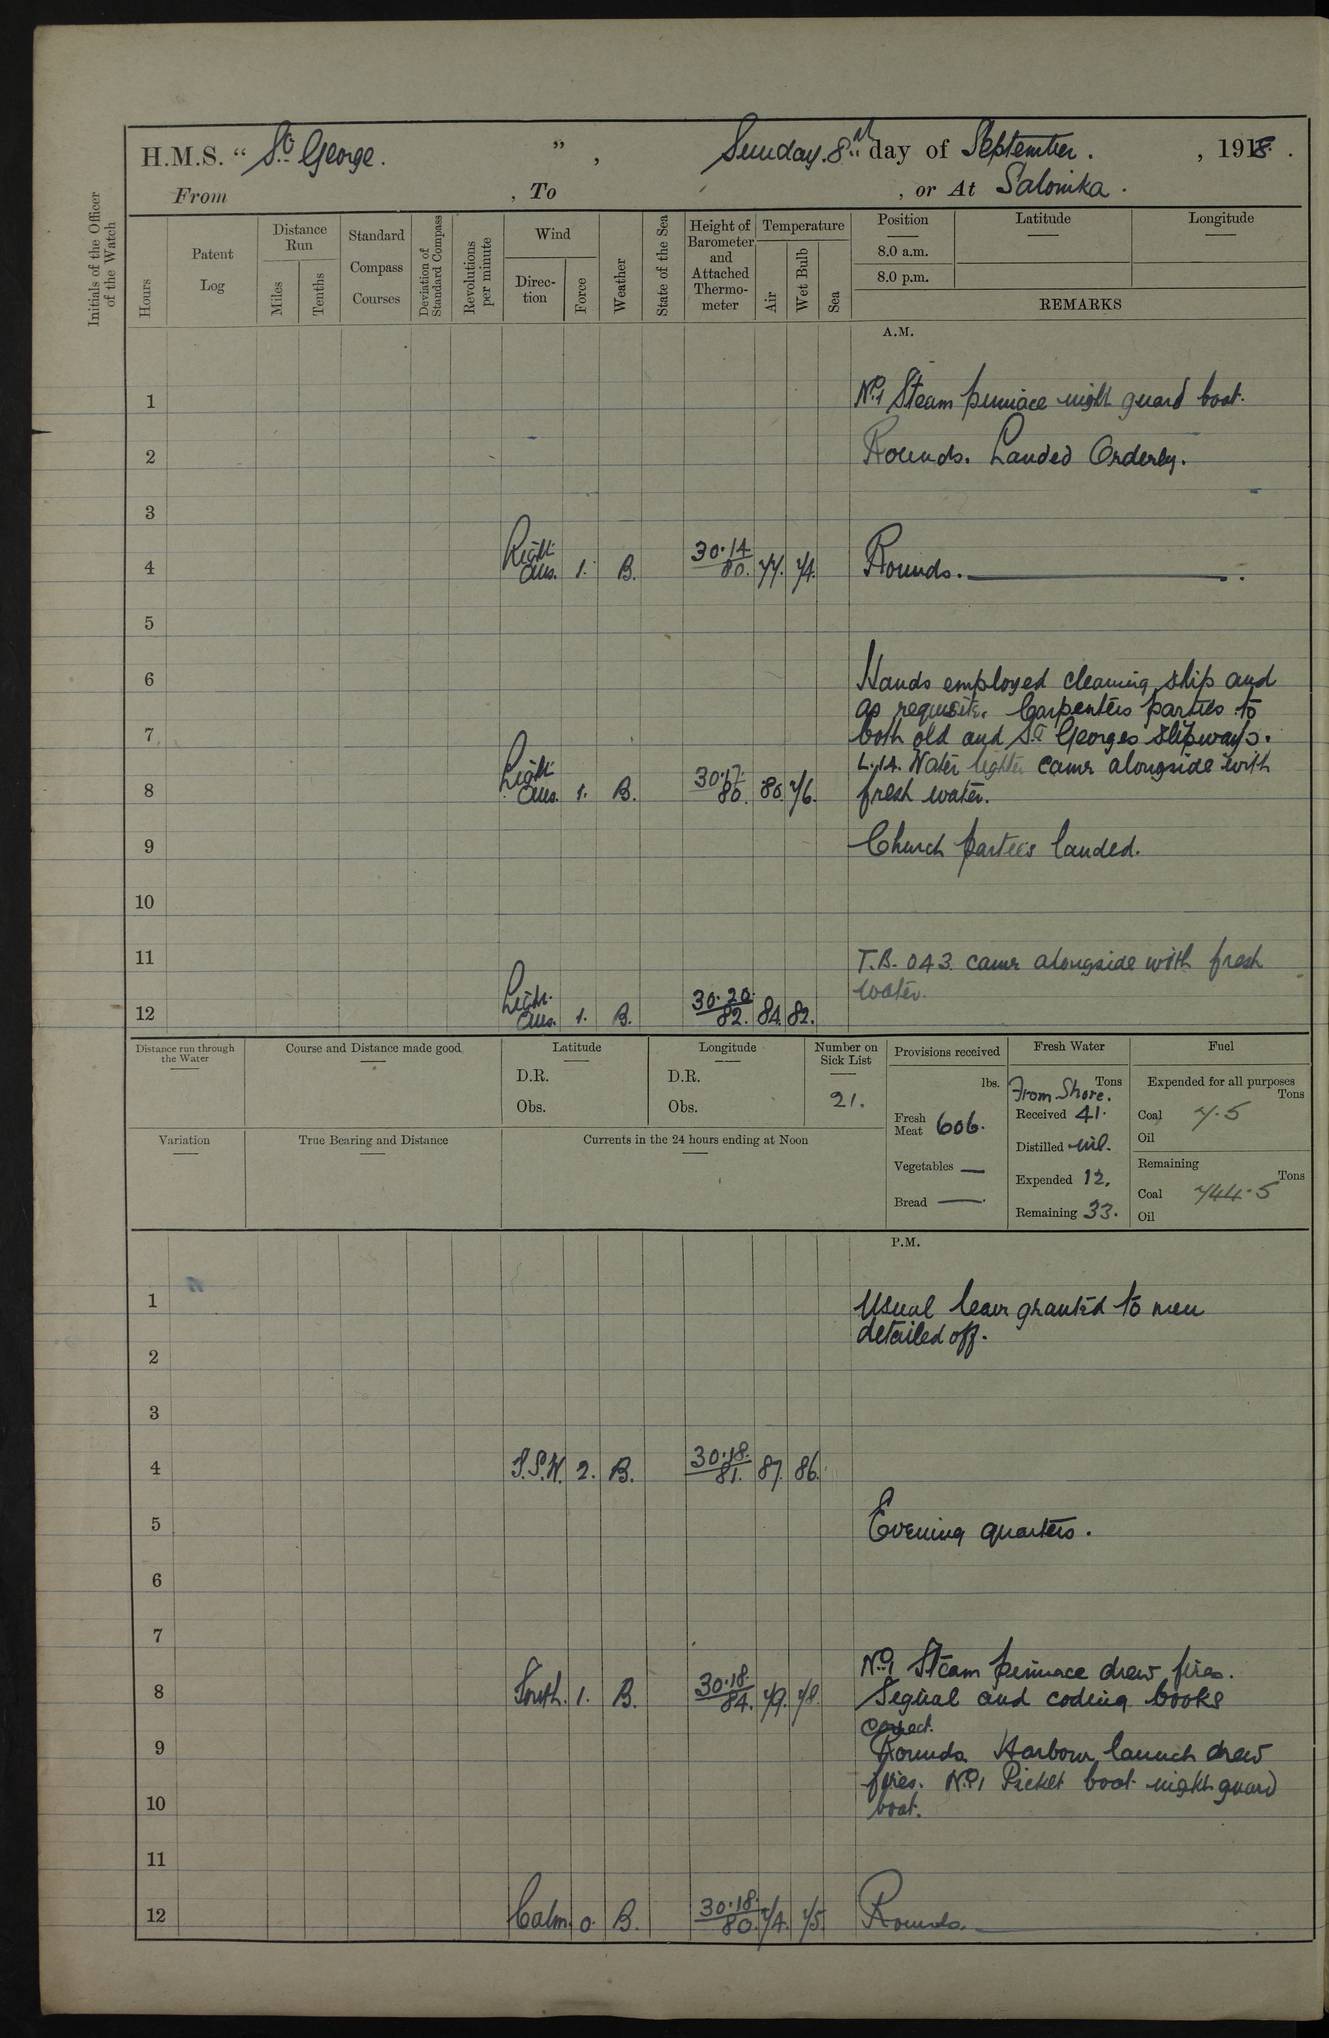 H.M.S. “ St George. ” , Sunday. 8th day of September. , 1918 .
From , To , or At Salonika .
Initials of the Officer of the Watch
Hours
Patent Log
Distance Run
Miles
Tenths
Standard Compass Courses
Deviation of Standard Compass
Revolutions per minute
Wind
Direction
Force
Weather
State of the Sea
Height of Barometer and Attached Thermometer
Temperature
Air
Wet Bulb
Sea
Position
8.0 a.m.
8.0 p.m.
Latitude
Longitude
REMARKS
A.M.
1 No.1 Steam pinnace night guard boat.
2 Rounds. Landed Orderly.
3
4 Light airs. 1. B. 30.14 80. 77. 74. Rounds.
5
6 Hands employed cleaning ship and
as requisite. Carpenters parties to
7 both old and St Georges slipways.
Water lighter came alongside with
8 Light airs. 1. B. 30.17. 80. 80. 76. fresh water.
9 Church parties landed.
10
11 T.B. 043. came alongside with fresh
water.
12 Light airs. 1. B. 30.20. 82. 84. 82.
Distance run through the Water
Course and Distance made good
Latitude
D.R.
Obs.
Longitude
D.R.
Obs.
Number on Sick List
21.
Provisions received
lbs.
Fresh Meat 606.
Vegetables —
Bread —
Fresh Water
Tons
From Shore.
Received 41.
Distilled nil.
Expended 12.
Remaining 33.
Fuel
Expended for all purposes
Tons
Coal 7.5
Oil
Remaining
Tons
Coal 744.5
Oil
Variation
True Bearing and Distance
Currents in the 24 hours ending at Noon
P.M.
1 Usual leave granted to men
detailed off.
2
3
4 S.S.W. 2. B. 30.18. 81. 87. 86.
5 Evening quarters.
6
7
No.1 Steam pinnace drew fires.
8 South. 1. B. 30.18. 84. 79. 78. Signal and coding books
correct.
9 Rounds. Harbour launch drew
fires. No.1 Picket boat night guard
10 boat.
11
12 Calm. 0. B. 30.18. 80. 74. 75. Rounds.